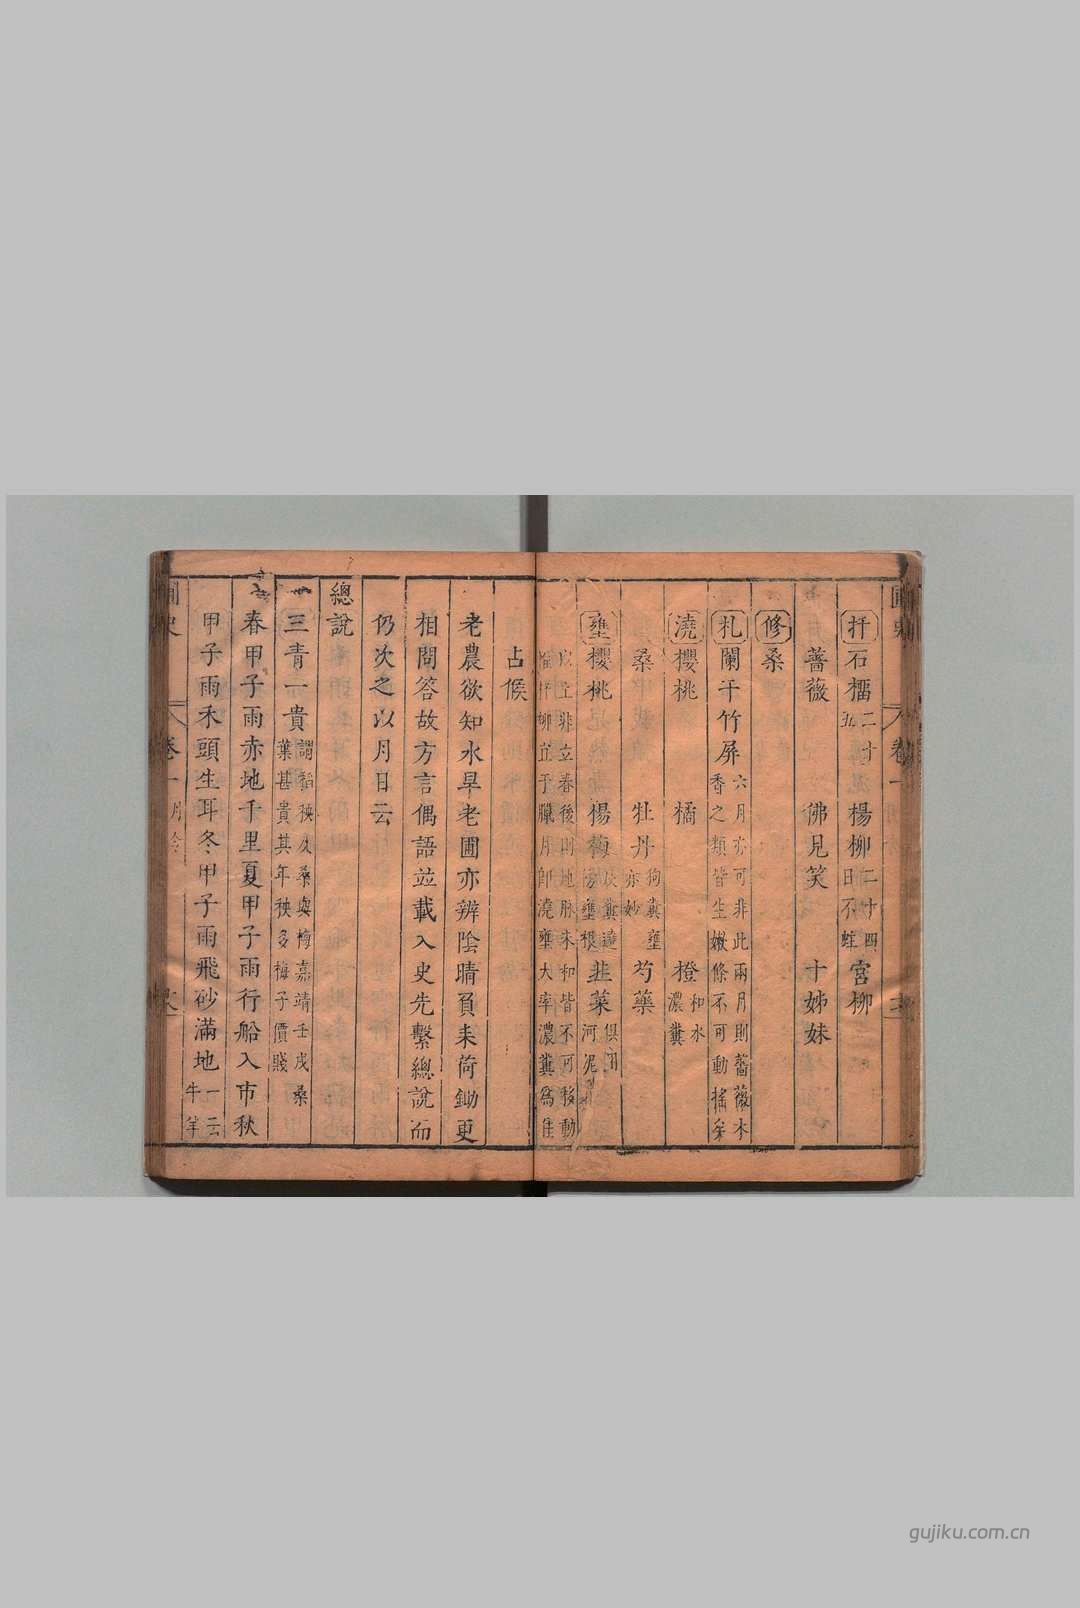 扦石榴二十五楊柳二十四日不蛀宮柳
薔薇 佛見笑 十姊妹
修桑
札闌干竹屏六月亦可非此兩月則薔薇木香之類皆生嫩條不可動搖矣
澆櫻桃 橘 橙和水濃糞
桑 牡丹狗糞壅亦妙芍藥
壅櫻桃 楊梅 韭菜
以上非立春後則地脉未和皆不可移動
臘月即澆壅大率濃糞為佳
占候
老農欲知水旱老圃亦辨陰晴負耒荷鋤更
相問答故方言偶語並載入史先繫總說而
仍次之以月日云
總說
三青一貴謂稻秧及桑與梅嘉靖壬戌桑葉甚貴其年秧多梅子價賤
春甲子雨赤地千里夏甲子雨行船入市秋
甲子雨禾頭生耳冬甲子雨飛砂滿地一云牛羊
史 卷一 月令
卷一
gujiku.com.cn